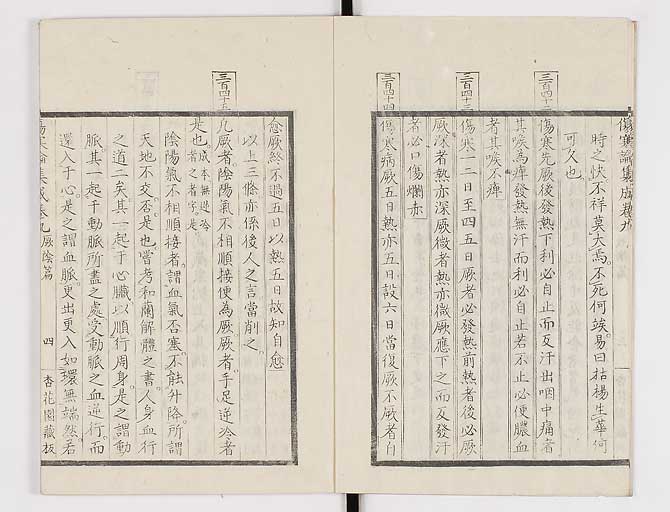 傷寒論集成卷九
時之快不祥莫大焉不死何竢易曰枯楊生華何
可久也
三百四十二
傷寒先厥後發熱下利必自止而反汗出咽中痛者
其喉為痺發熱無汗而利必自止若不止必便膿血
者其喉不痺
三百四十三
傷寒一二日至四五日厥者必發熱前熱者後必厥
厥深者熱亦深厥微者熱亦微厥應下之而反發汗
者必口傷爛赤
三百四十四
傷寒病厥五日熱亦五日設六日當復厥不厥者自
愈厥終不過五日以熱五日故知自愈
以上三條亦係後人之言當削之
三百四十五
凡厥者陰陽氣不相順接便為厥厥者手足逆冷者
是也成本無逆冷者之者字是
陰陽氣不相順接者謂血氣否塞不能升降所謂
天地不交否是也嘗考和蘭解體之書人身血行
之道二矣其一起于心臟以順行周身是之謂動
脈其一起于動脈所盡之處受動脈之血逆行而
還入于心是之謂血脈更出更入如環無端然若
傷寒論集成卷九 厥陰篇 四 杏花園藏板